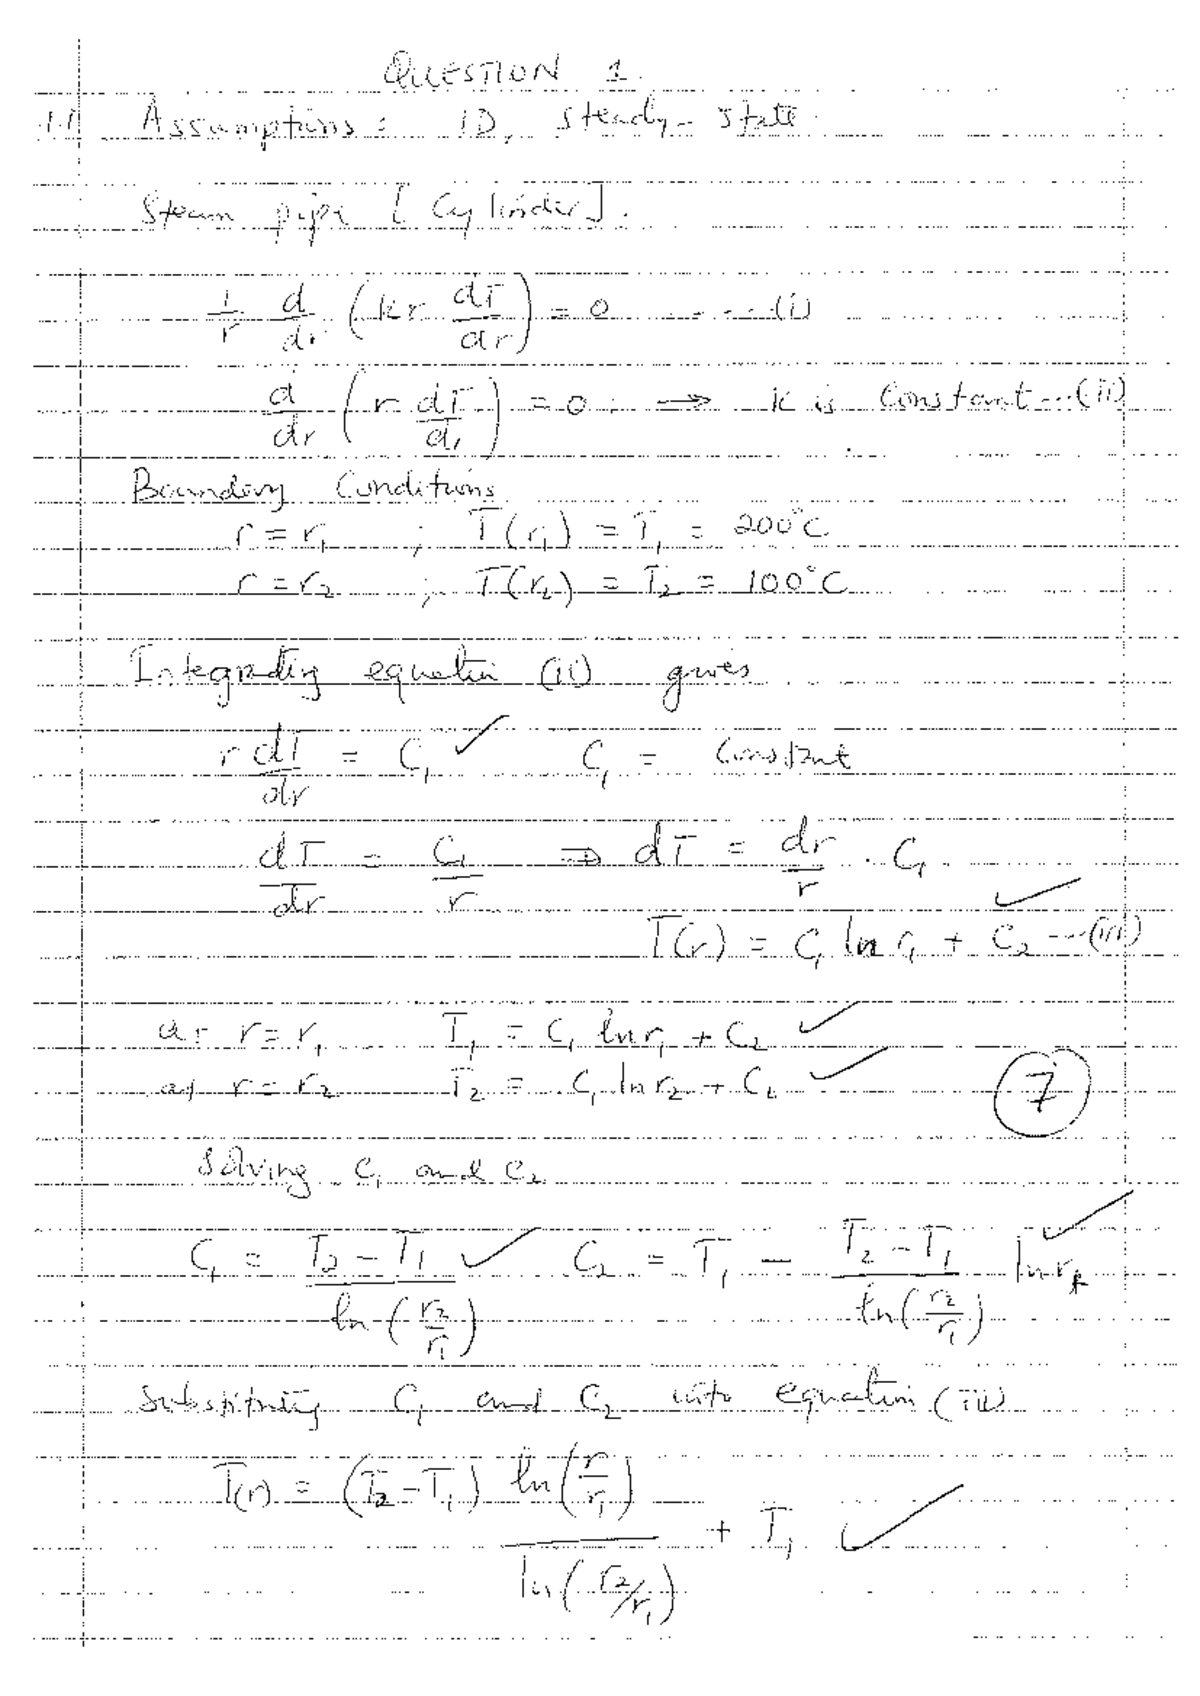 QUESTION 1.
1.1 Assumptions: 1D, steady-state
Steam pipe [Cylinder].
1/r d/dr (kr dT/dr) = 0 ---- (i)
d/dr (r dT/dr) = 0 ⇒ k is constant --- (ii)
Boundary Conditions
r = r₁ ; T(r₁) = T₁ = 200°C
r = r₂ ; T(r₂) = T₂ = 100°C
Integrating equation (ii) gives
r dT/dr = C₁ ✓ C₁ = Constant
dT/dr = C₁/r ⇒ dT = dr/r · C₁
T(r) = C₁ ln r₁ + C₂ --- (iii) ✓
at r = r₁ T₁ = C₁ ln r₁ + C₂ ✓
at r = r₂ T₂ = C₁ ln r₂ + C₂ ✓
7
Solving C₁ and C₂
C₁ = (T₂ - T₁)/ln(r₂/r₁) ✓ C₂ = T₁ - (T₂ - T₁)/ln(r₂/r₁) ln r₁ ✓
Substituting C₁ and C₂ into equation (iii)
T(r) = (T₂ - T₁) ln(r/r₁)/ln(r₂/r₁) + T₁ ✓